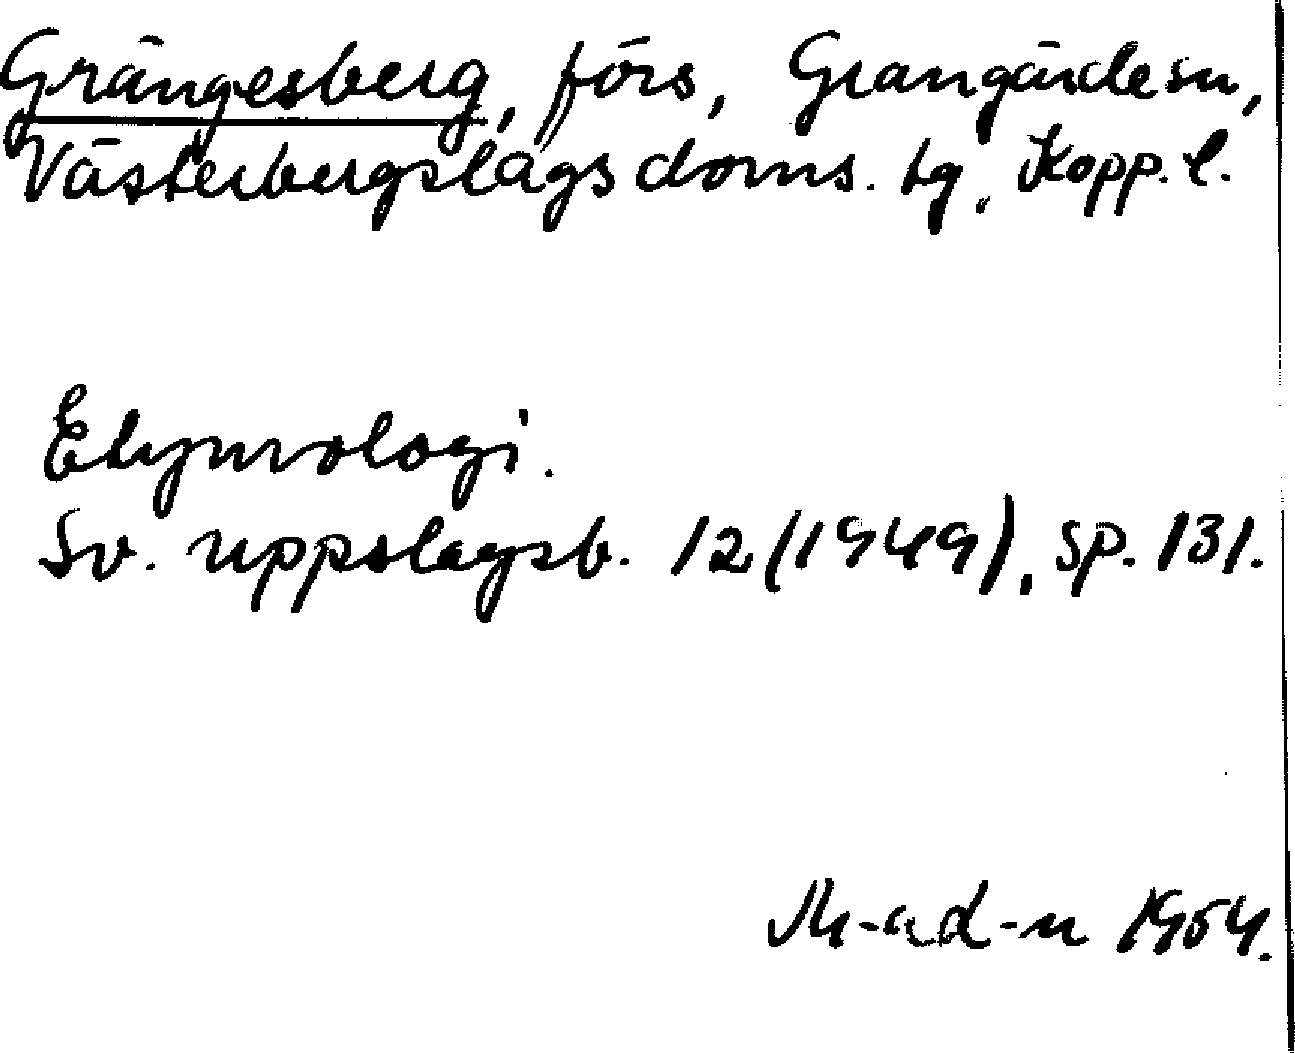 Grängesberg, förs, Grangärde sn,
Västerbergslags doms. tg. Kopp. l.
Etymologi.
Sv. uppslagsb. 12 (1949), sp. 131.
1954.